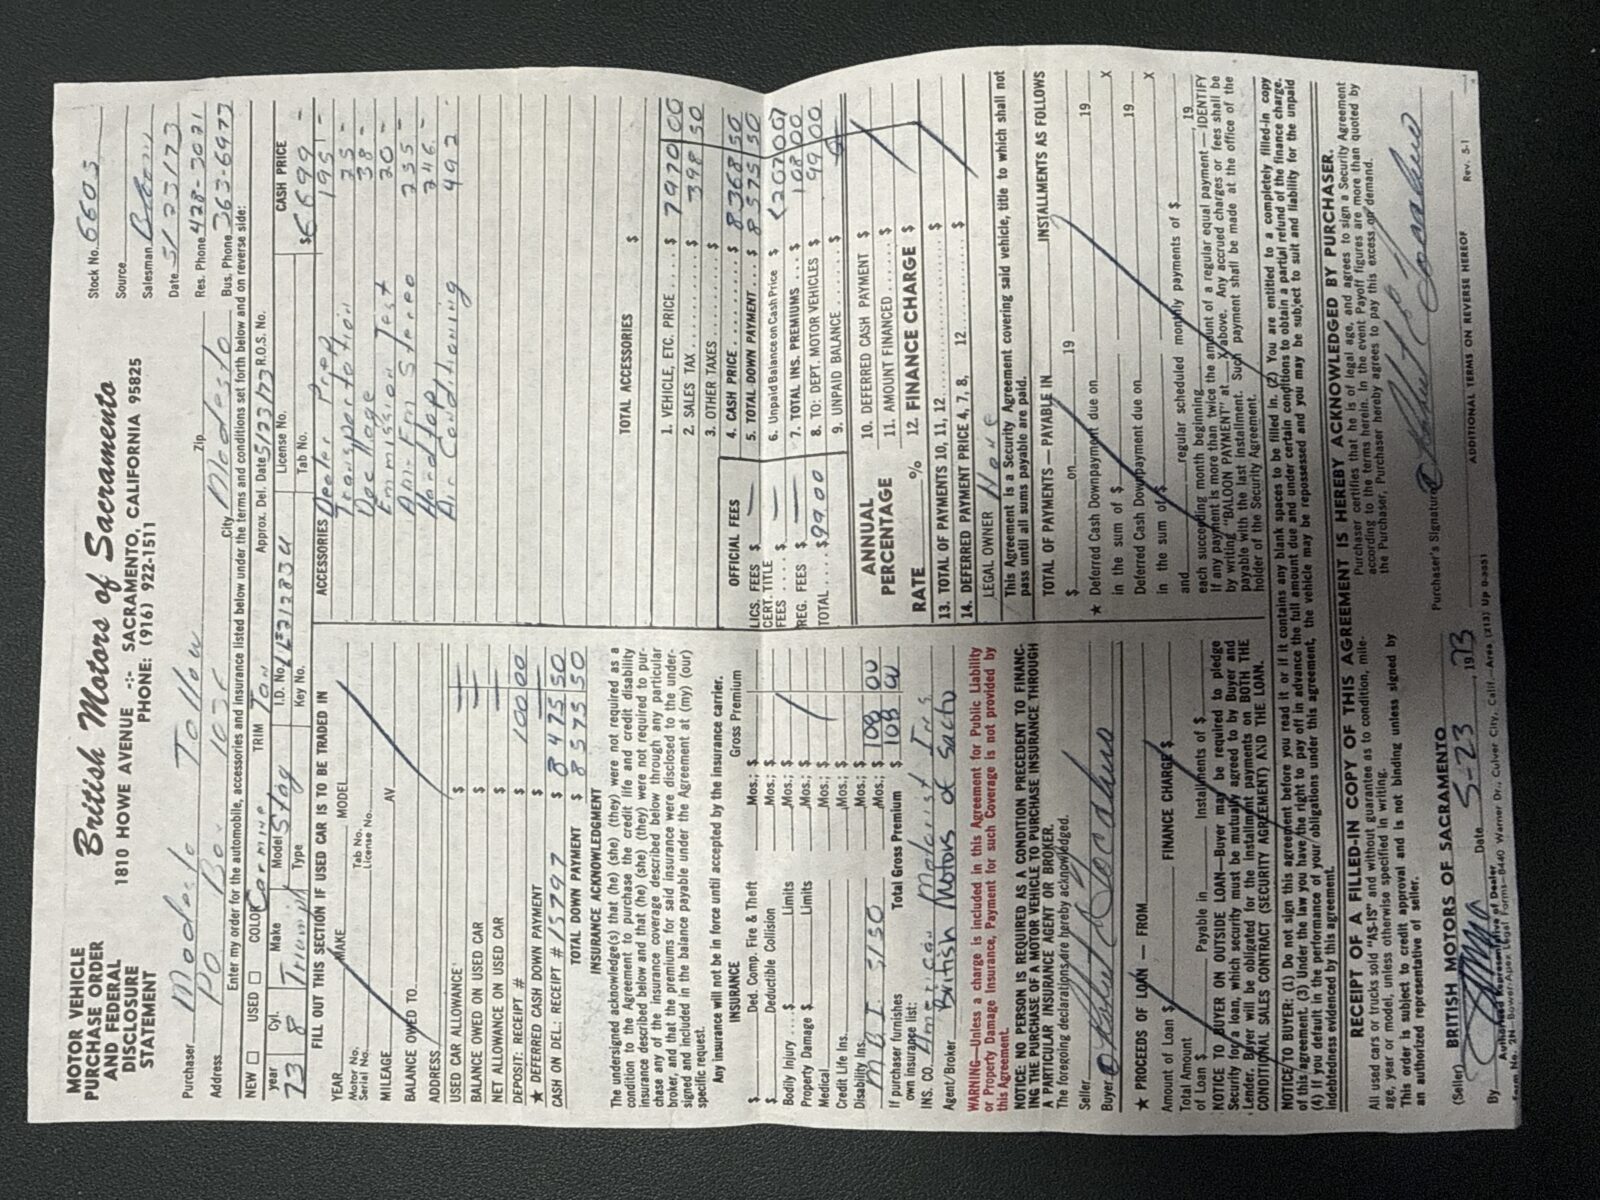 MOTOR VEHICLE
PURCHASE ORDER
AND FEDERAL
DISCLOSURE
STATEMENT
British Motors of Sacramento
1810 HOWE AVENUE -:- SACRAMENTO, CALIFORNIA 95825
PHONE: (916) 922-1511
Stock No. 6603
Source
Salesman
Date 5/23/73
Res. Phone 428-3021
Bus. Phone 363-6977
Purchaser Modesto Tallow
Address PO Box 1036 City Modesto Zip
Enter my order for the automobile, accessories and insurance listed below under the terms and conditions set forth below and on reverse side:
NEW □ USED □ COLOR Carmine TRIM Tan Approx. Del. Date 5/23/73 R.O.S. No.
year 73 Cyl. 8 Make Triumph Model Stag Type I.D. No. Key No. License No. Tab No.
FILL OUT THIS SECTION IF USED CAR IS TO BE TRADED IN
YEAR MAKE MODEL
Motor No. Serial No. Tab No. License No.
MILEAGE AV
BALANCE OWED TO
ADDRESS
USED CAR ALLOWANCE $
BALANCE OWED ON USED CAR $
NET ALLOWANCE ON USED CAR $
DEPOSIT: RECEIPT # $ 100 00
★ DEFERRED CASH DOWN PAYMENT $
CASH ON DEL.: RECEIPT # 15797 $ 8475 50
TOTAL DOWN PAYMENT $ 8575 50
INSURANCE ACKNOWLEDGMENT
The undersigned acknowledge(s) that he) (she) (they) were not required as a
condition to the Agreement to purchase the credit life and credit disability
insurance described below and that (he) (she) (they) were not required to pur-
chase any of the insurance coverage described below through any particular
broker, and that the premiums for said insurance were disclosed to the under-
signed and included in the balance payable under the Agreement at (my) (our)
specific request.
Any insurance will not be in force until accepted by the insurance carrier.
INSURANCE Gross Premium
$ Ded. Comp. Fire & Theft Mos.; $
$ Deductible Collision Mos.; $
Bodily Injury $ Limits Mos.; $
Property Damage $ Limits Mos.; $
Medical Mos.; $
Credit Life Ins. Mos.; $
Disability Ins. Mos.; $
MBI 5/50 Mos.; $ 108 00
If purchaser furnishes own insurance list: Total Gross Premium $ 108 00
INS. CO. American Motorist Ins
Agent/Broker British Motors of Sacto
WARNING—Unless a charge is included in this Agreement for Public Liability
or Property Damage Insurance, Payment for such Coverage is not provided by
this Agreement.
NOTICE: NO PERSON IS REQUIRED AS A CONDITION PRECEDENT TO FINANC-
ING THE PURCHASE OF A MOTOR VEHICLE TO PURCHASE INSURANCE THROUGH
A PARTICULAR INSURANCE AGENT OR BROKER.
The foregoing declarations are hereby acknowledged.
Seller
Buyer
★ PROCEEDS OF LOAN — FROM
Amount of Loan $ FINANCE CHARGE $
Total Amount of Loan $ Payable in Installments of $
NOTICE TO BUYER ON OUTSIDE LOAN—Buyer may be required to pledge
Security for a loan, which security must be mutually agreed to by Buyer and
Lender. Buyer will be obligated for the installment payments on BOTH THE
CONDITIONAL SALES CONTRACT (SECURITY AGREEMENT) AND THE LOAN.
ACCESSORIES CASH PRICE
$ 6699 -
Dealer Prep 195 -
Transportation 25 -
Doc 38 -
Emission Test 20 -
Am-Fm Stereo 235 -
Hardtop 246 -
Air Conditioning 492 -
TOTAL ACCESSORIES $
1. VEHICLE, ETC. PRICE $ 7970 00
2. SALES TAX $ 398 50
3. OTHER TAXES $
4. CASH PRICE $ 8368 50
5. TOTAL DOWN PAYMENT $ 8575 50
6. Unpaid Balance on Cash Price $ <207 00>
7. TOTAL INS. PREMIUMS $ 108 00
8. TO: DEPT. MOTOR VEHICLES $ 99 00
9. UNPAID BALANCE $
OFFICIAL FEES
LICS. FEES $ —
CERT. TITLE FEES $ —
REG. FEES $ —
TOTAL $ 99 00
ANNUAL
PERCENTAGE
RATE %
10. DEFERRED CASH PAYMENT $
11. AMOUNT FINANCED $
12. FINANCE CHARGE $
13. TOTAL OF PAYMENTS 10, 11, 12 $
14. DEFERRED PAYMENT PRICE 4, 7, 8, 12 $
LEGAL OWNER None
This Agreement is a Security Agreement covering said vehicle, title to which shall not
pass until all sums payable are paid.
TOTAL OF PAYMENTS — PAYABLE IN INSTALLMENTS AS FOLLOWS
$ on 19
★ Deferred Cash Downpayment due on 19
in the sum of $ X
Deferred Cash Downpayment due on 19
in the sum of $ X
and regular scheduled monthly payments of $
each succeeding month beginning , 19
If any payment is more than twice the amount of a regular equal payment — IDENTIFY
by writing "BALOON PAYMENT" at X above. Any accrued charges or fees shall be
payable with the last installment. Such payment shall be made at the office of the
holder of the Security Agreement.
NOTICE TO BUYER: (1) Do not sign this agreement before you read it or if it contains any blank spaces to be filled in. (2) You are entitled to a completely filled-in copy
of this agreement. (3) Under the law you have the right to pay off in advance the full amount due and under certain conditions to obtain a partial refund of the finance charge.
(4) If you default in the performance of your obligations under this agreement, the vehicle may be repossessed and you may be subject to suit and liability for the unpaid
indebtedness evidenced by this agreement.
RECEIPT OF A FILLED-IN COPY OF THIS AGREEMENT IS HEREBY ACKNOWLEDGED BY PURCHASER.
All used cars or trucks sold "AS-IS" and without guarantee as to condition, mile-
age, year or model, unless otherwise specified in writing.
This order is subject to credit approval and is not binding unless signed by
an authorized representative of seller.
Purchaser certifies that he is of legal age, and agrees to sign a Security Agreement
according to the terms herein. In the event Payoff figures are more than quoted by
the Purchaser, Purchaser hereby agrees to pay this excess on demand.
(Seller) BRITISH MOTORS OF SACRAMENTO
By Date 5-23, 1973 Purchaser's Signature
Authorized Representative of Dealer
ADDITIONAL TERMS ON REVERSE HEREOF Rev. 5-1